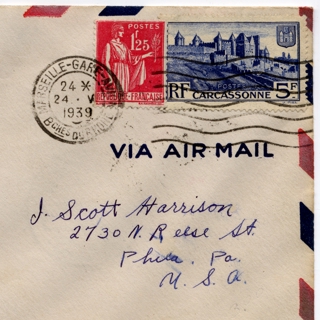 POSTES
1F25
RÉPUBLIQUE-FRANÇAISE
POSTES
RF CARCASSONNE 5F
MARSEILLE-GARE
24 *
24 · V
1939
BCHES DU RHONE
VIA AIR MAIL
J. Scott Harrison
2730 N. Reese St.
Phila. Pa.
U. S. A.